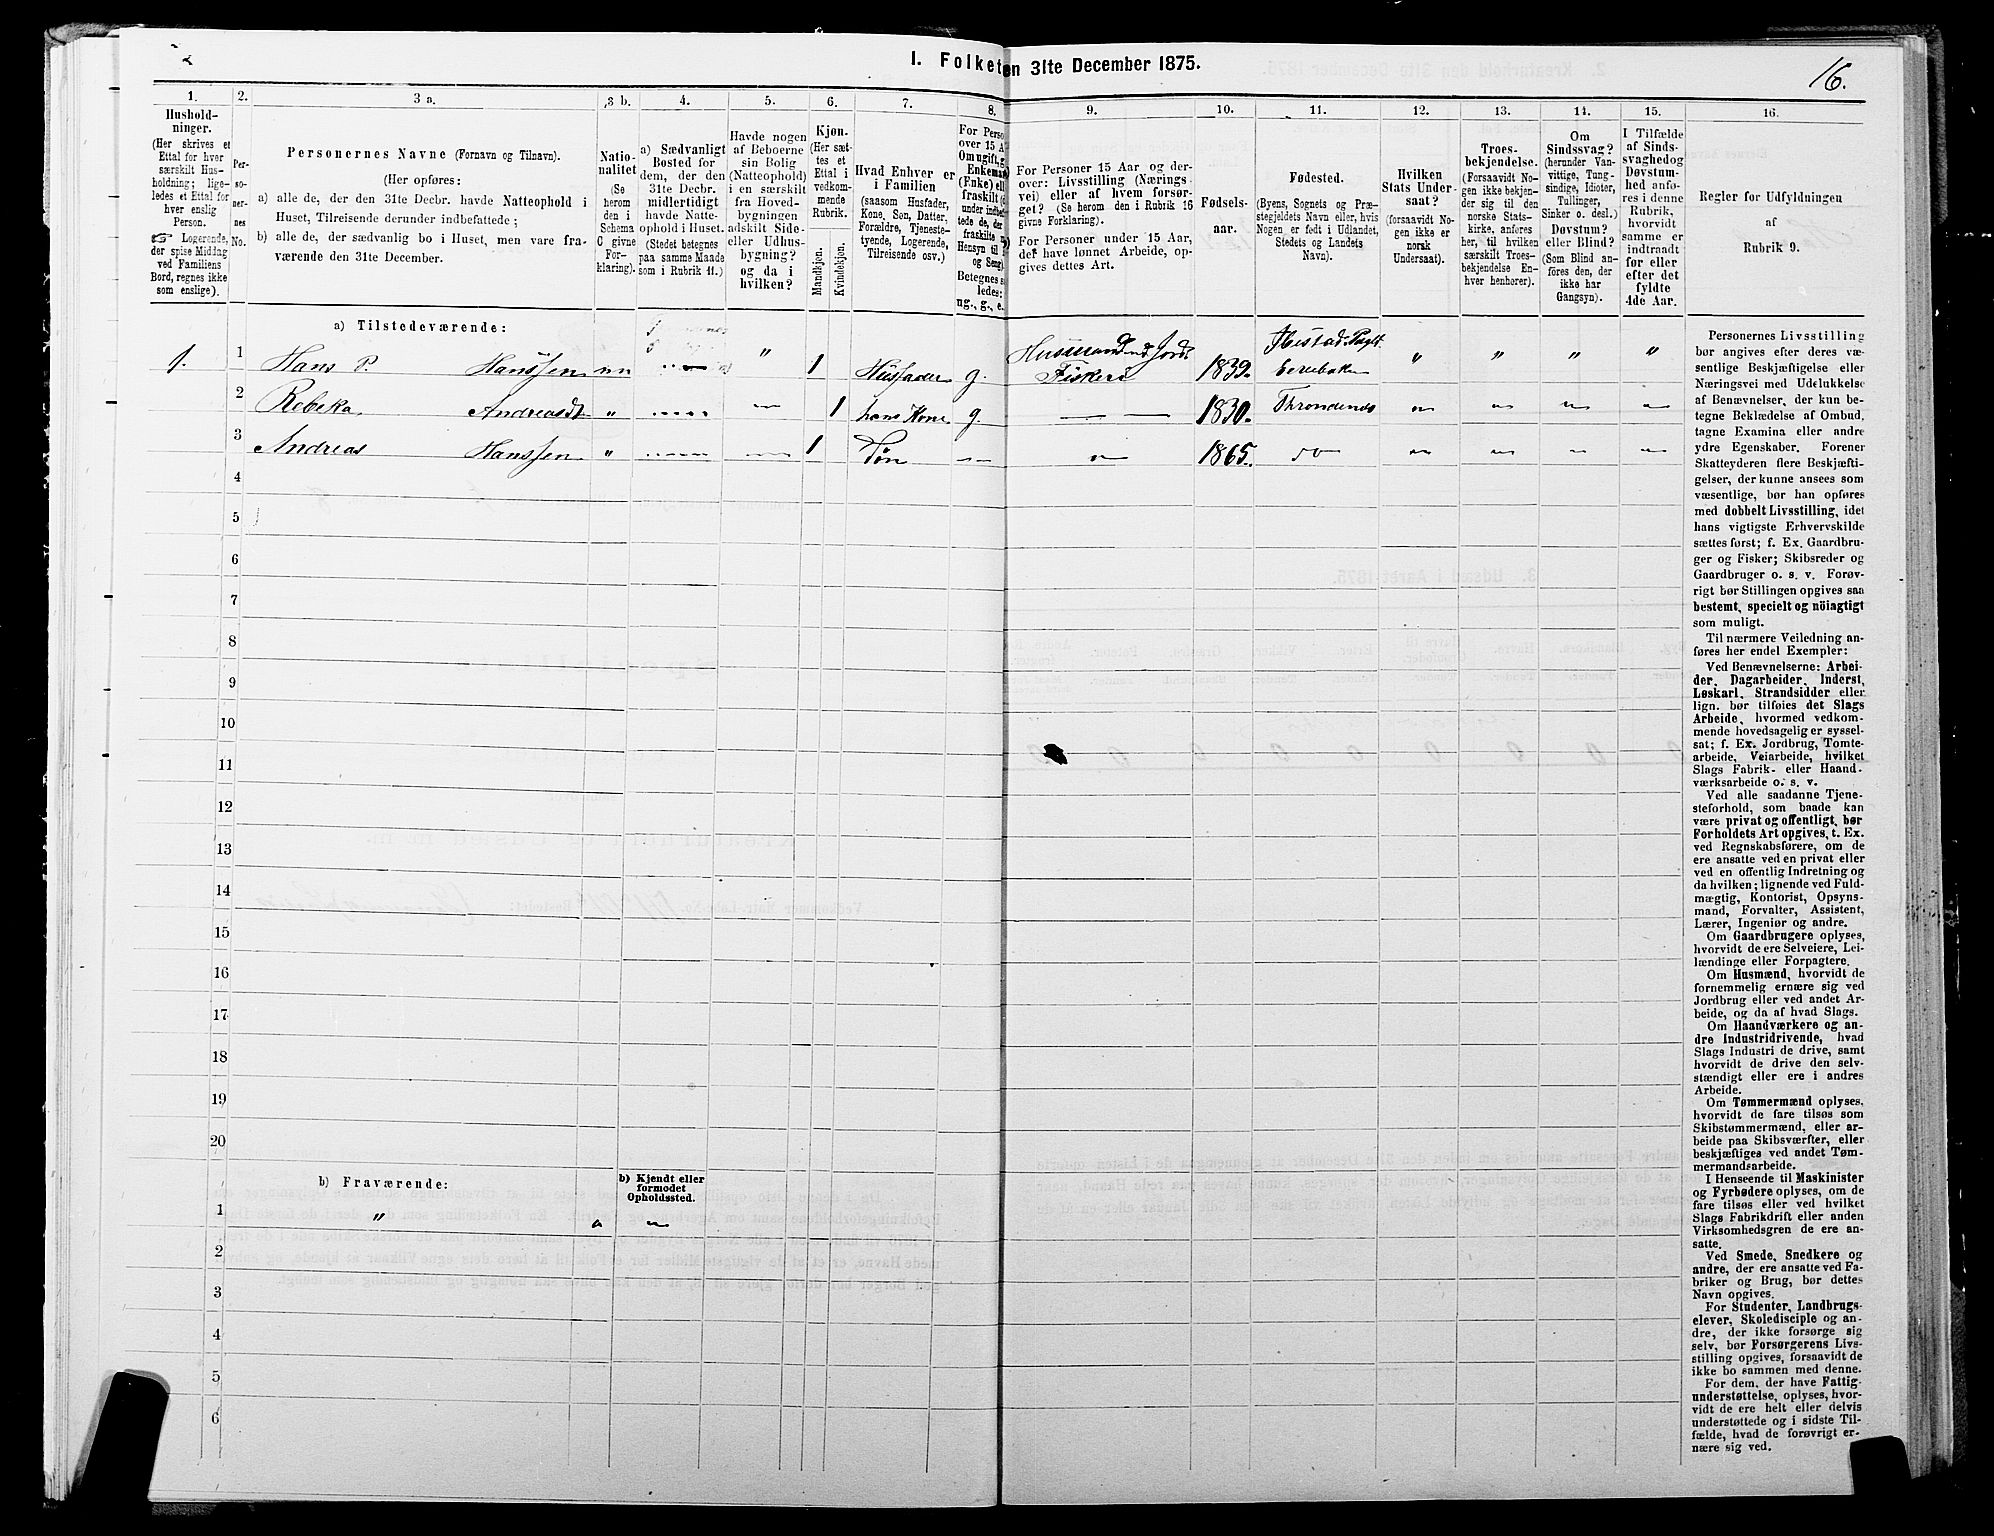 I. Folketa
en 31te December 1875.
16.
1.
Hushold-
ninger.
(Her skrives et
Ettal for hver
særskilt Hus-
holdning; lige-
ledes et Ettal for
hver enslig
Person.
Logerende,
der spise Middag
ved Familiens
Bord, regnes ikke
som enslige).
2.
Per-
so-
ner-
nes
No.
3 a.
Personernes Navne (Fornavn og Tilnavn).
(Her opføres:
a) alle de, der den 31te Decbr. havde Natteophold i
Huset, Tilreisende derunder indbefattede;
b) alle de, der sædvanlig bo i Huset, men vare fra-
værende den 31te December.
3 b.
Natio-
nalitet
(Se
herom
den i
Schema
C givne
For-
klaring).
4.
a) Sædvanligt
Bosted for
dem, der den
31te Decbr.
midlertidigt
havde Natte-
ophold i Huset.
(Stedet betegnes
paa samme Maade
som i Rubrik 11.)
5.
Havde nogen
af Beboerne
sin Bolig
(Natteophold)
i en særskilt
fra Hoved-
bygningen
adskilt Side-
eller Udhus-
bygning?
og da i
hvilken?
6.
Kjøn.
(Her sæt-
tes et
Ettal i
vedkom-
mende
Rubrik.
Mandkjøn.
Kvindekjøn.
7.
Hvad Enhver er
i Familien
(saasom Husfader,
Kone, Søn, Datter,
Forældre, Tjeneste-
tyende, Logerende,
Tilreisende osv.)
8.
For Perso
over 15 A
Om ugift, g
Enkeman
(Enke) ell
fraskilt
Betegnes s
ledes:
ug., g., e.
9.
For Personer 15 Aar og der-
over: Livsstilling (Nærings-
vei) eller af hvem forsør-
get? (Se herom den i Rubrik 16
givne Forklaring).
For Personer under 15 Aar,
der have lønnet Arbeide, op-
gives dettes Art.
10.
Fødsels-
aar.
11.
Fødested.
(Byens, Sognets og Præ-
stegjeldets Navn eller, hvis
Nogen er født i Udlandet,
Stedets og Landets
Navn).
12.
Hvilken
Stats Under-
saat?
(forsaavidt No-
gen ikke er
norsk
Undersaat).
13.
Troes-
bekjendelse.
(Forsaavidt No-
gen ikke bekjen-
der sig til den
norske Stats-
kirke, anføres
her, til hvilken
særskilt Troes-
bekjendelse En-
hver henhører).
14.
Om
Sindssvag?
(herunder Van-
vittige, Tung-
sindige, Idioter,
Tullinger,
Sinker o. desl.)
Døvstum?
eller Blind?
(Som Blind an-
føres den, der
ikke har
Gangsyn).
15.
I Tilfælde
af Sinds-
svaghed og
Døvstum-
hed anfø-
res i denne
Rubrik,
hvorvidt
samme er
indtraadt
før eller
efter det
fyldte
4de Aar.
16.
Regler for Udfyldningen
af
Rubrik 9.
a) Tilstedeværende:
1. 1 Hans P. Hanssen nn " 1 Husfader g. Husmand md Jord. Fiskeri 1839. Ibestad Pgld. " " " "
2 Rebeka Andreasdt " 1 hans Kone g. 1830. Throndenæs
3 Andreas Hanssen " 1 Søn 1865. do
4
5
6
7
8
9
10
11
12
13
14
15
16
17
18
19
20
b) Fraværende:
b) Kjendt eller
formodet
Opholdssted.
1 "
2
3
4
5
6
Personernes Livsstilling
bør angives efter deres væ-
sentlige Beskjæftigelse eller
Næringsvei med Udelukkelse
af Benævnelser, der kun be-
tegne Beklædelse af Ombud,
tagne Examina eller andre
ydre Egenskaber. Forener
Skatteyderen flere Beskjæfti-
gelser, der kunne ansees som
væsentlige, bør han opføres
med dobbelt Livsstilling, idet
hans vigtigste Erhvervskilde
sættes først; f. Ex. Gaardbru-
ger og Fisker; Skibsreder og
Gaardbruger o. s. v. Forøv-
rigt bør Stillingen opgives saa
bestemt, specielt og nöiagtigt
som muligt.
Til nærmere Veiledning an-
føres her endel Exempler:
Ved Benævnelserne: Arbei-
der, Dagarbeider, Inderst,
Løskarl, Strandsidder eller
lign. bør tilføies det Slags
Arbeide, hvormed vedkom-
mende hovedsagelig er syssel-
sat; f. Ex. Jordbrug, Tomte-
arbeide, Veiarbeide, hvilket
Slags Fabrik- eller Haand-
værksarbeide o. s. v.
Ved alle saadanne Tjene-
steforhold, som baade kan
være privat og offentligt, bør
Forholdets Art opgives, t. Ex.
ved Regnskabsførere, om de
ere ansatte ved en privat eller
ved en offentlig Indretning og
da hvilken; lignende ved Fuld-
mægtig, Kontorist, Opsyns-
mand, Forvalter, Assistent,
Lærer, Ingeniør og andre.
Om Gaardbrugere oplyses,
hvorvidt de ere Selveiere, Lei-
lændinge eller Forpagtere.
Om Husmænd, hvorvidt de
fornemmelig ernære sig ved
Jordbrug eller ved andet Ar-
beide, og da af hvad Slags.
Om Haandværkere og an-
dre Industridrivende, hvad
Slags Industri de drive, samt
hvorvidt de drive den selv-
stændigt eller ere i andres
Arbeide.
Om Tømmermænd oplyses,
hvorvidt de fare tilsøs som
Skibstømmermænd, eller ar-
beide paa Skibsværfter, eller
beskjæftiges ved andet Tøm-
mermandsarbeide.
I Henseende til Maskinister
og Fyrbødere oplyses, om de
fare tilsøs eller ved hvilket
Slags Fabrikdrift eller anden
Virksomhedsgren de ere an-
satte.
Ved Smede, Snedkere og
andre, der ere ansatte ved Fa-
briker og Brug, bør dettes
Navn opgives.
For Studenter, Landbrugs-
elever, Skoledisciple og an-
dre, der ikke forsørge sig
selv, bør Forsørgerens Livs-
stilling opgives, forsaavidt de
ikke bo sammen med denne.
For dem, der have Fattig-
understøttelse, oplyses, hvor-
vidt de ere helt eller delvis
understøttede og i sidste Til-
fælde, hvad de forøvrigt er-
nære sig ved.